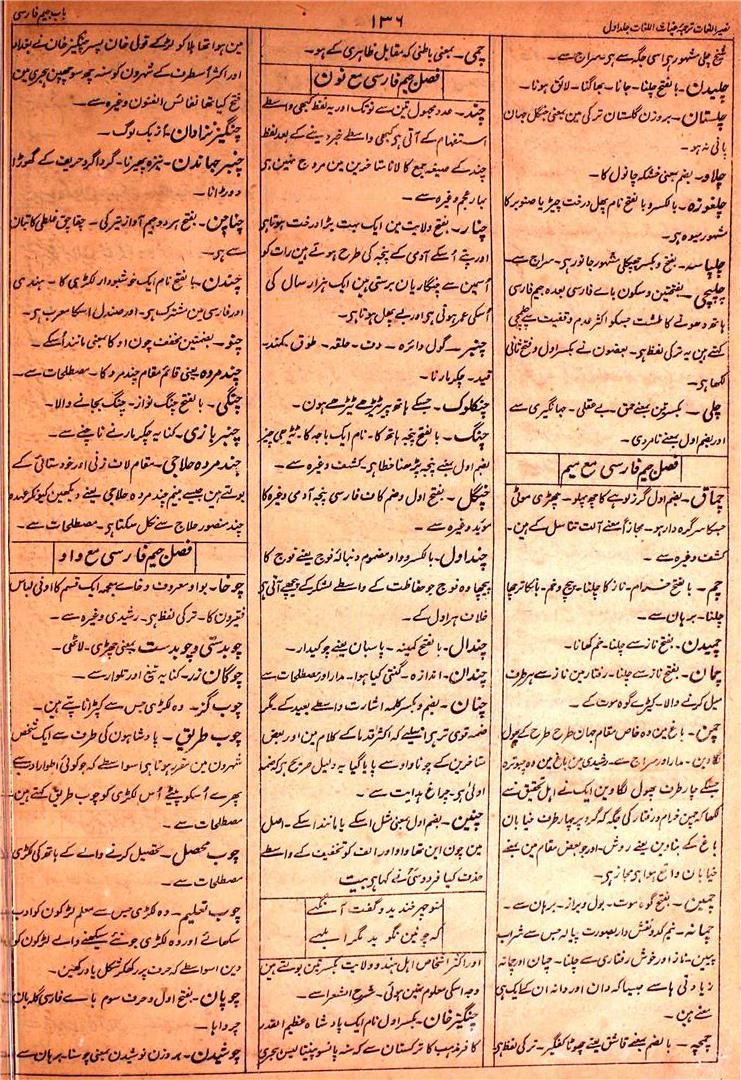 نصیر اللغات ترجمہ غیاث اللغات جلد اول
۱۳۶
باب جیم فارسی
شیخ چلی مشہور ہی اسی جگہ سے ہی سراج سے۔
چلیدن۔ بالفتح چلنا۔ جانا۔ بھاگنا۔ لائق ہونا۔
چلستان۔ بروزن گلستان ترکی مین بمعنی جنگل جہان
پانی نہو۔
چلاو۔ بضم بمعنی خشکہ چانول کا۔
چلغوزہ۔ بالکسر و بالفتح نام پھل درخت چیڑ یا صنوبر کا
مشہور میوہ ہی۔
چلپاسہ۔ بفتح و بکسر چھپکلی مشہور جانور ہی۔ سراج سے۔
چلپچی۔ بفتحتین و سکون باے فارسی بعدہ جیم فارسی
ہاتھ دھونے کا طشت جسکو اکثر عدم وقفیت سے چلمچی
کہتے ہین یہ ترکی لفظ ہی۔ بعضون نے بکسر اول و فتح ثانی
لکھا ہی۔
چلی۔ بکسرتین بمعنے حمق۔ بے عقلی۔ جہانگیری سے
اور بضم اول بمعنے نامردی۔
فصل جیم فارسی مع میم
چماق۔ بضم اول گرز لوہے کا چھ پہلو۔ چھڑی موٹی
جسکا سر گرہ دار ہو۔ مجازاً بمعنے آلت تناسل کے ہین۔
کشف وغیرہ سے۔
چم۔ بالفتح خرام۔ ناز کا چلنا۔ پیچ و خم۔ بانکا ترچھا
چلنا۔ برہان سے۔
چمیدن۔ بفتح ناز سے چلنا۔ خم کھانا۔
چمان۔ بفتح ناز سے چلنا۔ رفتار مین ناز سے ہر طرف
میل کرنے والا۔ کیڑے گوہ موت کے۔
چمن۔ باغ مین وہ خاص مقام جہان طرح طرح کے پھول
لگاوین۔ مدار اور سراج سے۔ رشیدی مین باغ مین وہ چبوترہ
جسکے چار طرف پھول لگاوین ایک نے اہل تحقیق سے
لکھا کہ چمن خرام و رفتار کی جگہ کہ گرد پر چہار طرف خیابان
باغ کے بناوین یعنے روش۔ اور جو بعض مقام مین بمعنے
خیابان واقع ہوا ہی مجاز ہی۔
چمین۔ بفتح گوہ موت۔ بول و براز۔ برہان سے۔
چمانہ۔ نیم کدو نقش دار بصورت پیالہ جس سے شراب
پیین۔ ناز اور خوش رفتاری سے چلنا۔ چمان اور چمانہ
زیادتی ہا سے جیسا کہ دان اور دانہ ان کے ایک ہی
معنے ہین۔
چمچہ۔ بالضم بمعنے قاشق یعنے چھوٹا کفگیر۔ ترکی لفظ ہی
چمی۔ بمعنی باطنی کہ مقابل ظاہری کے ہو۔
فصل جیم فارسی مع نون
چند۔ عدد مجہول تین سے نو تک اور یہ لفظ کبھی واسطے
استفہام کے آتی ہی کبھی واسطے خبر دینے کے بعد لفظ
چند کے صیغہ جمع کا لانا متاخرین مین مروج نہین ہی
بہار عجم وغیرہ سے۔
چنار۔ بفتح ولایت مین ایک بہت بڑا درخت ہوتا ہی
اور پتے اُسکے آدمی کے پنجہ کی طرح ہوتے ہین رات کو
اُسمین سے چنگاریان برستی ہین ایک ہزار سال کی
اُسکی عمر ہوتی ہی اور بے پھل ہوتا ہی۔
چنبر۔ گول دائرہ۔ دف۔ حلقہ۔ طوق۔ کمند۔
قید۔ چکر مارنا۔
چنگلوک۔ جسکے ہاتھ پیر ٹیڑھے ٹیڑھے ہون۔
چنگ۔ بالفتح پنجہ ہاتھ کا۔ نام ایک باجہ کا۔ ٹیڑھی چیز
بضم اول بمعنے پنجہ پڑھنا خطا ہی۔ کشف وغیرہ سے۔
چنگل۔ بفتح اول و ضم کاف فارسی پنجہ آدمی وغیرہ کا
موید وغیرہ سے۔
چنداول۔ بالکسر و واو مضموم دنبالہ فوج یعنے فوج کا
پیچھا وہ فوج جو حفاظت کے واسطے لشکر کے پیچھے آتی ہی
خلاف ہراول کے۔
چندال۔ بالفتح کمینہ۔ پاسبان یعنے چوکیدار۔
چندان۔ اندازہ۔ گنتی کیا ہوا۔ مدار اور مصطلحات سے
چنان۔ بضم و بکسر کلمہ اشارت واسطے بعید کے مگر
ضمہ قوی تر ہی اسلیے کہ اکثر قدما کے کلام مین اور بعض
متاخرین کے چونان واو سے پایا گیا یہ دلیل صریح ہی کہ ضمہ
اولیٰ ہی۔ چراغ ہدایت سے۔
چنین۔ بضم اول بمعنی مثل اسکے یا مانند اسکے۔ اصل
مین چون این تھا واو اور الف کو تخفیف کے واسطے
حذف کیا فردوسی نے کہا ہی بیت
منوچہر خندید و گفت آنگہے
کہ چونین نگوید مگر ابلہے
اور اکثر اشخاص اہل ہند و ولایت بکسرتین بولتے ہین
وجہ اسکی معلوم نہین ہوئی۔ شرح الشعرا سے۔
چنگیز خان۔ بکسر اول نام ایک بادشاہ عظیم القدر
کافر مذہب کا ترکستان سے کہ سنہ پانسو پینتالیس ہجری
مین ہوا تھا ہلاکو لڑکے قولی خان پسر چنگیز خان نے بغداد
اور اکثر اُسطرف کے شہرون کو سنہ چھ سو چھپن ہجری مین
فتح کیا تھا نفائس الفنون وغیرہ سے۔
چنگیز نژادان۔ نازک لوگ۔
چنبر جہاندن۔ نیزہ پھیرنا۔ گردا گرد حریف کے گھوڑا
دوڑانا۔
چناچن۔ بفتح ہر دو جیم آواز تیر کی۔ چقاچق غلطی کاتبان
سے ہی۔
چندن۔ بالفتح نام ایک خوشبودار لکڑی کا۔ ہندی
اور فارسی مین مشترک ہی۔ اور صندل اسکا معرب ہی۔
چنو۔ بضمتین مخفف چون او کا بمعنی مانند اُسکے۔
چند مردہ یعنی قائم مقام چند مرد کا۔ مصطلحات سے۔
چنگی۔ بالفتح چنگ نواز۔ چنگ بجانے والا۔
چنبر بازی۔ کنایہ چکر مارنے ناچنے سے۔
چند مردہ حلاجی۔ مقام لاف زنی اور خودستائی کے
بولتے ہین جیسے بینم چند مردہ حلاجی یعنے دیکھین کیونکر عہدہ
چند منصور حلاج سے نکل سکتا ہی۔ مصطلحات سے۔
فصل جیم فارسی مع واو
چوخا۔ بواو معروف و خاے معجمہ ایک قسم کا اونی لباس
فقیرون کا۔ ترکی لفظ ہی۔ رشیدی وغیرہ سے۔
چوبدستی و چوبدست بمعنی چھڑی۔ لاٹھی۔
چوگان زر۔ کنایہ تیغ اور تلوار سے۔
چوب گز۔ وہ لکڑی جس سے کپڑا ناپتے ہین۔
چوب طریق۔ بادشاہون کی طرف سے ایک شخص
شہرون مین مقرر ہوتا ہی اسواسطے کہ جو کوئی اطوار ادب سے
پھرے اُسکو پیٹے اُس لکڑی کو چوب طریق کہتے ہین۔
مصطلحات سے۔
چوب محصل۔ تحصیل کرنے والے کے ہاتھ کی لکڑی
مصطلحات سے۔
چوب تعلیم۔ وہ لکڑی جس سے معلم لڑکون کو ادب
سکھائے اور وہ لکڑی جو نئے سیکھنے والے لڑکون کو
دین اسواسطے کہ حرف پر رکھکر شکل یاد رکھین۔
چوپان۔ بفتح اول و حرف سوم باے فارسی گلہ بان
چرواہا۔
چوشیدن۔ بروزن نوشیدن بمعنی چوسنا۔ برہان سے